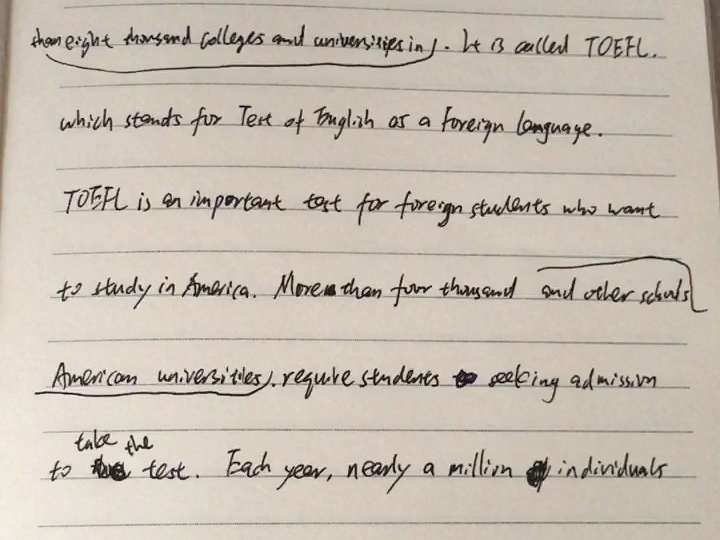 than eight thousand colleges and universities in). It is called TOEFL.
which stands for Test of English as a Foreign language.
TOEFL is an important test for foreign students who want
to study in America. More than four thousand and other schools
American universities). require students seeking admission
take the
to test. Each year, nearly a million individuals